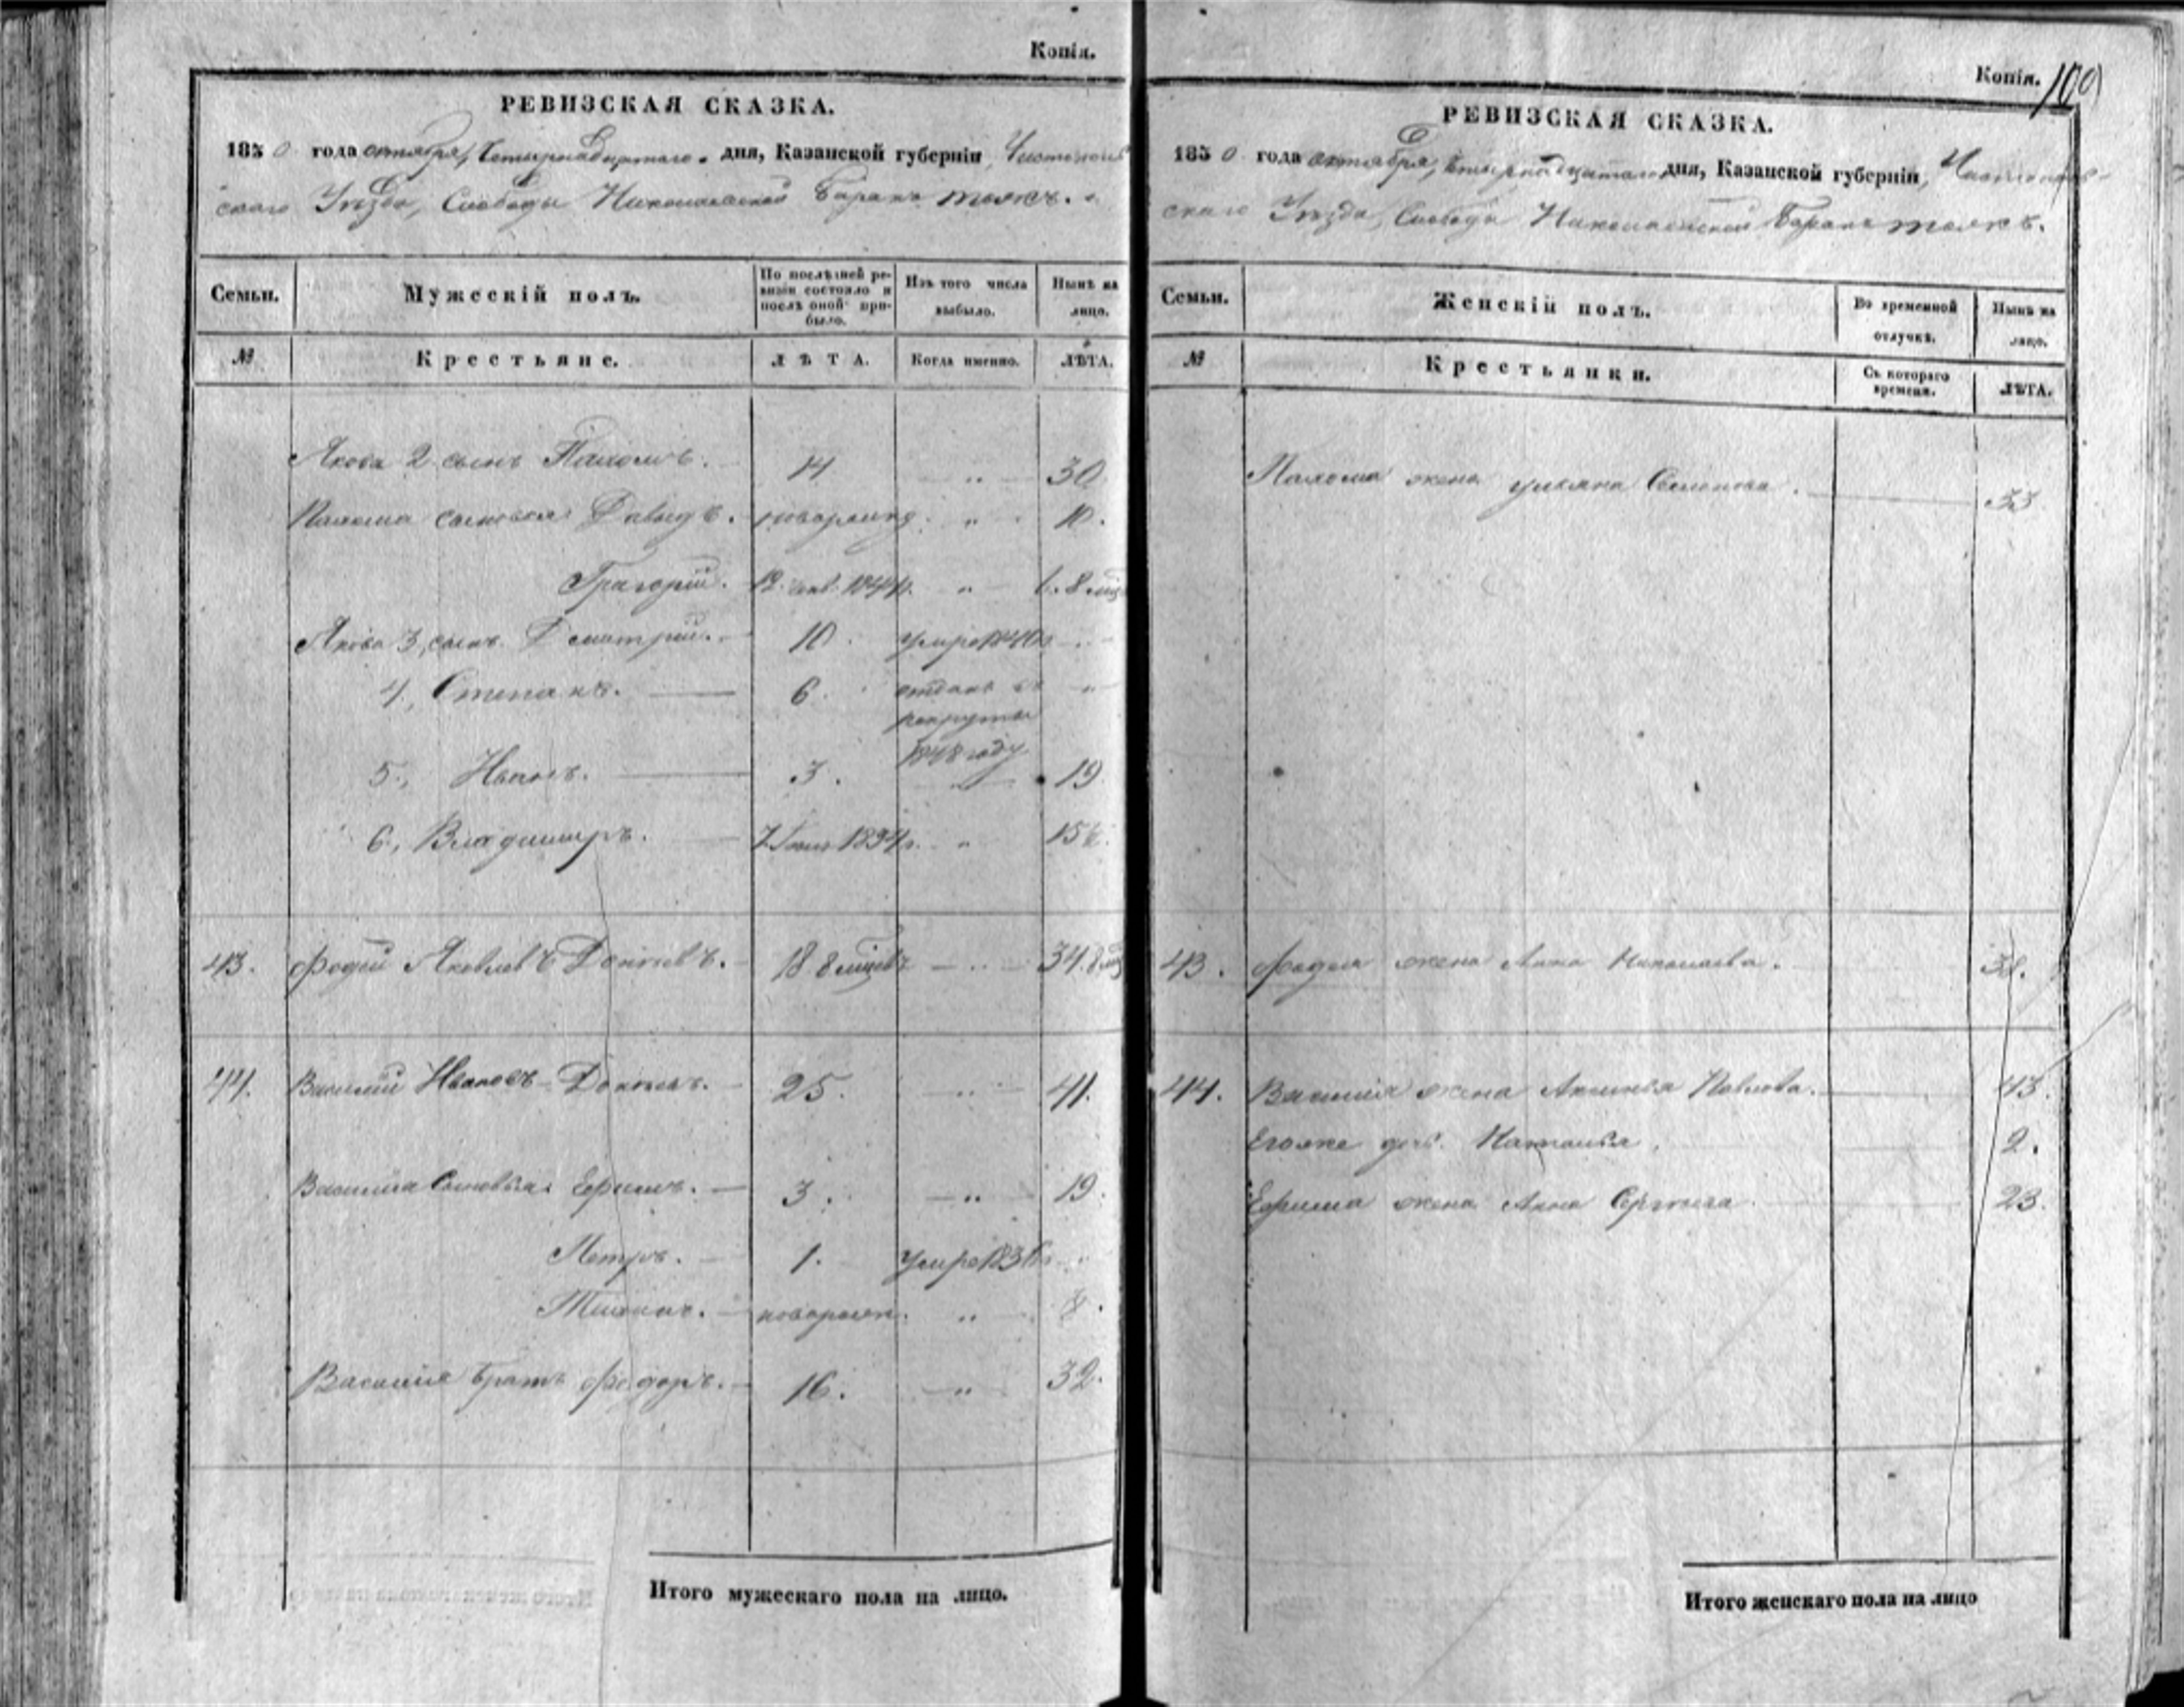 Копія.
РЕВИЗСКАЯ СКАЗКА.
1850 года октября, Четырнадцатаго дня, Казанской губерніи, Чистополь
скаго Уѣзда, Слободы Николаевской Баранъ тожъ.
Семьи. Мужескій полъ. По послѣдней ревизіи состояло и послѣ оной прибыло. Изъ того числа выбыло. Нынѣ на лицо.
№ Крестьяне. ЛѢТА. Когда именно. ЛѢТА.
Якова 2 сынъ 14 " 30
сыновья Давыдъ. " 10.
Григорій. 1844 " 6. 8 мѣс
Якова 3, сынъ Дмитрій. 10. умре 1840
4, Степанъ. 6. отданъ въ "
рекруты
1848 году
5., Иванъ. 3. " 19
6., Владимиръ. 1834 " 15
43. Фадѣй Яковлевъ 18 8 мѣсевъ " 34. 8
44. Василий Ивановъ 25. " 41.
Василия Сыновья Ефимъ. 3. " 19.
Петръ. 1. умре 183
новорожд. " 8.
Василия братъ Федоръ. 16. " 32.
Итого мужескаго пола на лицо.
Копія. 109
РЕВИЗСКАЯ СКАЗКА.
1850 года октября, Четырнадцатаго дня, Казанской губерніи, Чистополь-
скаго Уѣзда, Слободы Николаевской Баранъ тожъ.
Семьи. Женскій полъ. Во временной отлучкѣ. Нынѣ на лицо.
№ Крестьянки. Съ котораго времени. ЛѢТА.
жена Ульяна
43. Фадея жена Анна Николаева.
44. Василия жена Аксинья Павлова. 43.
Егоже дочь Наталья. 2.
Ефима жена Анна Сергеева 23.
Итого женскаго пола на лицо